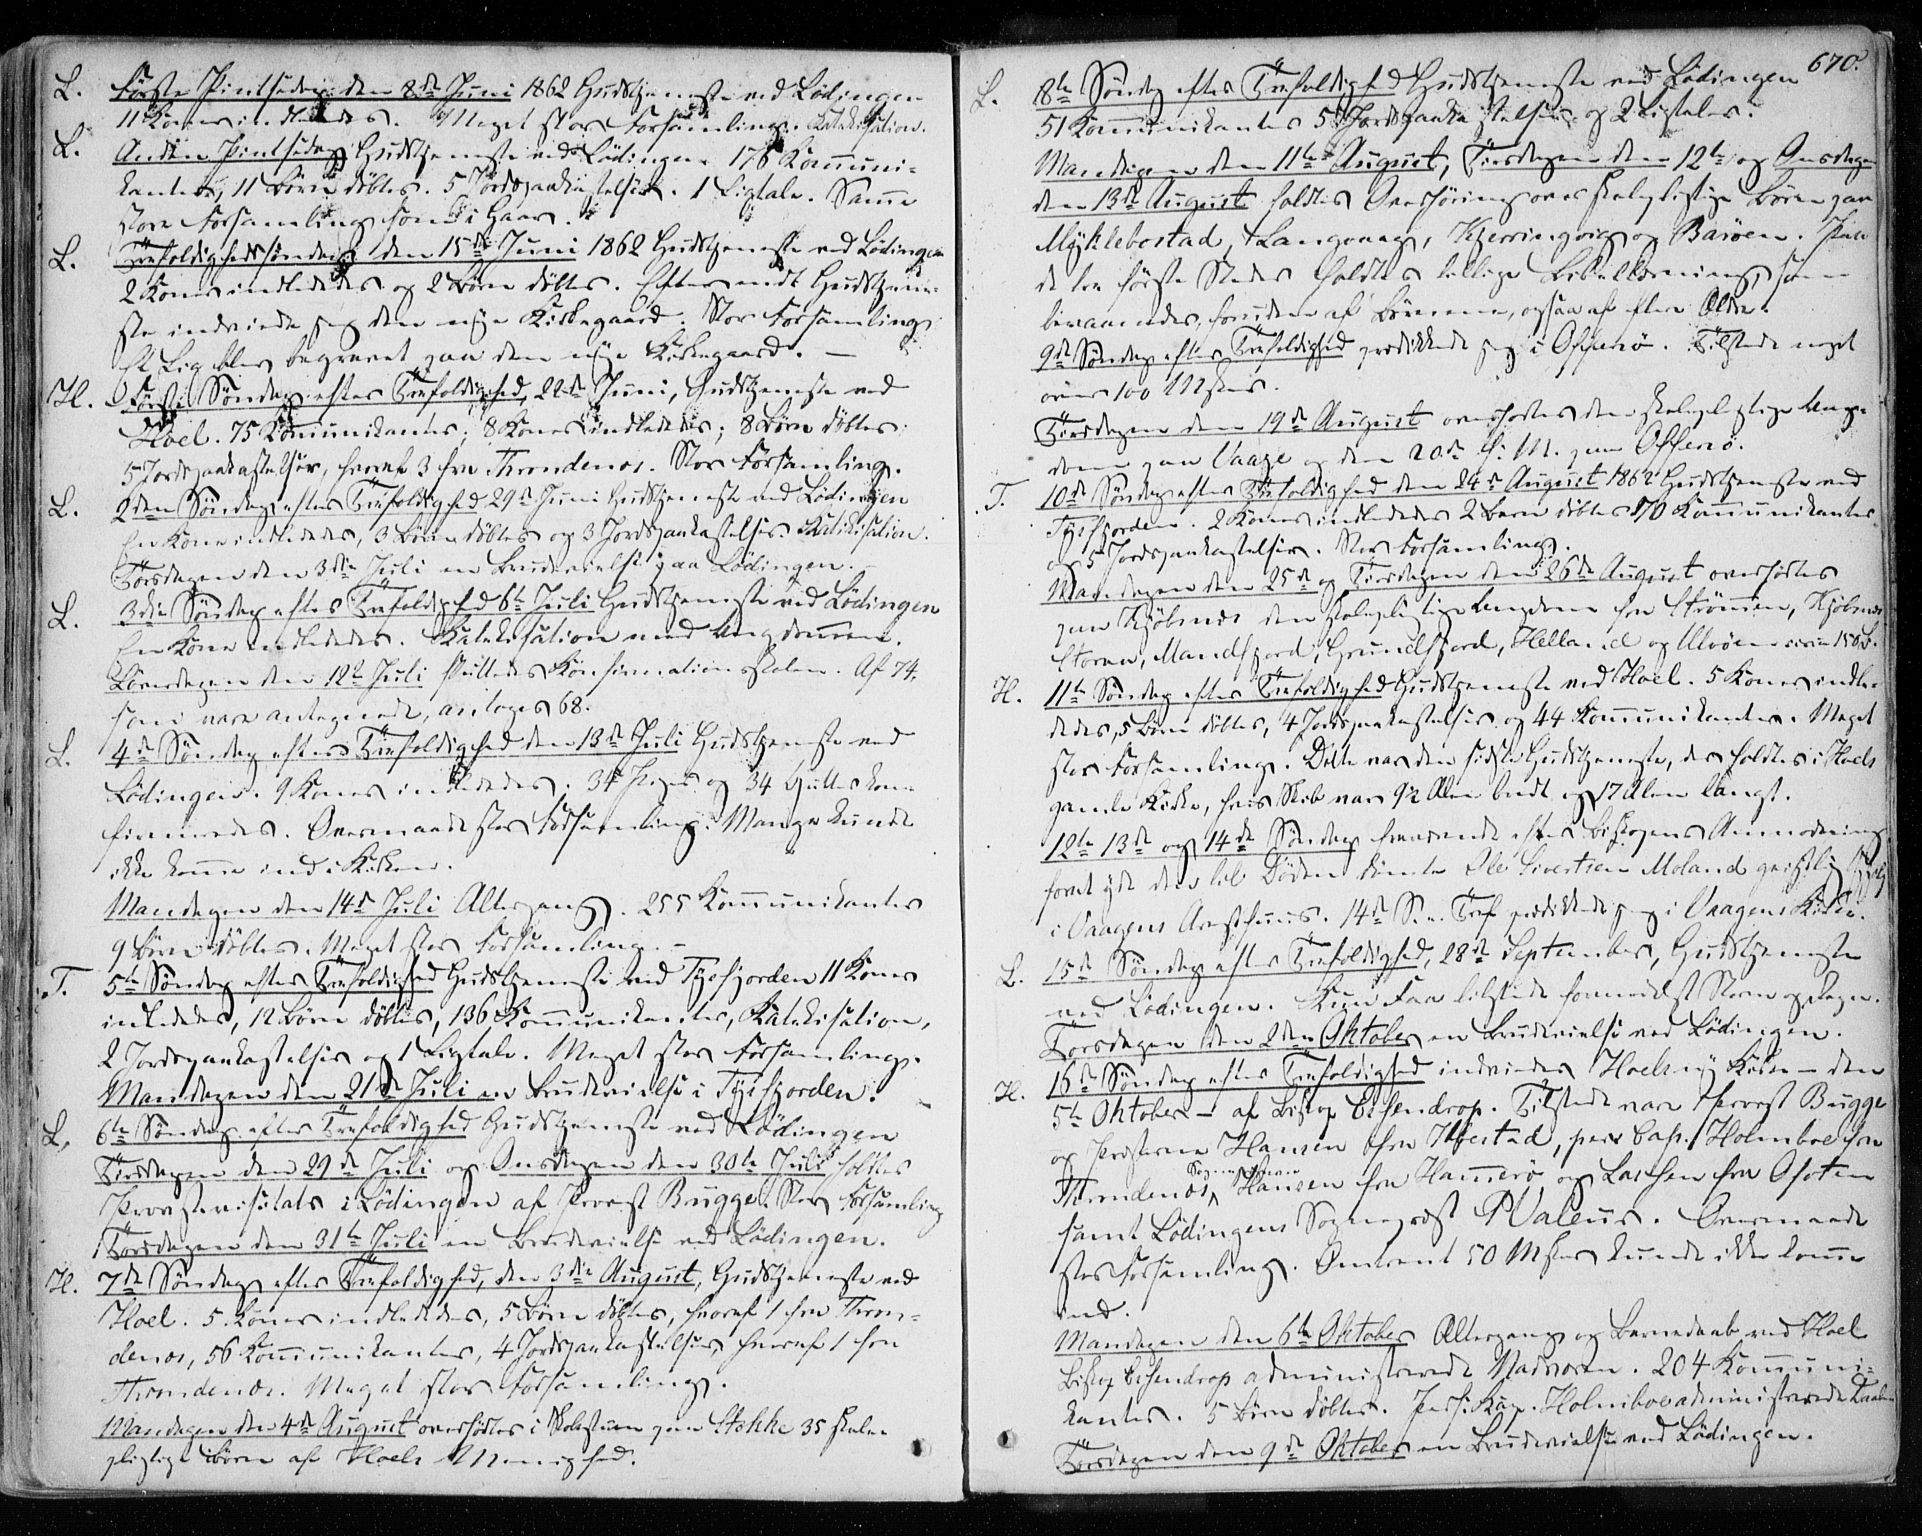 L. Første Pintsedag den 8de Juni 1862 Gudstjeneste ved Lödingen
11 Koner indlededes. Meget stor Forsamling. Katekisation.
L. Anden Pintsedag Gudstjeneste ved Lödingen. 176 Kommuni-
kanter, 11 Börn döbtes. 5 Jordspaakastelser. 1 Ligtale. Samme
store Forsamling som i Gaar.
L. Trefoldighedssöndag den 15de Juni 1862 Gudstjeneste ved Lödingen
2 Koner indlededes og 2 Börn döbtes. Efter endt Gudstjene-
ste indviede jeg den nye Kirkegaard. Stor Forsamling
Et Lig blev begravet paa den nye Kirkegaard. —
H. Förste Söndag efter Trefoldighed, 22de Juni, Gudstjeneste ved
Hoel. 75 Kommunikanter; 8 Koner indlededes; 8 Börn döbtes.
5 Jordspaakastelser, hvoraf 3 fra Throndenes. Stor Forsamling.
L. 2den Söndag efter Trefoldighed 29de Juni Gudstjeneste ved Lödingen
En Kone indlededes, 3 Börn döbtes og 3 Jordspaakastelser. Katekisation.
Torsdagen den 3die Juli en Brudevielse paa Lödingen.
L. 3die Söndag efter Trefoldighed 6te Juli Gudstjeneste ved Lödingen
En Kone indlededes. Katekisation med Ungdommen.
Löverdagen den 12te Juli sluttedes Konfirmationsskolen. Af 74,
som vare antegnede, antoges 68.
L. 4de Söndag efter Trefoldighed den 13de Juli Gudstjeneste ved
Lödingen. 9 Koner indlededes. 34 Piger og 34 Gutter kon-
firmeredes. Overmaade stor Forsamling. Mange kunde
ikke komme ind i Kirken.
Mandagen den 14de Juli Altergang. 255 Kommunikanter
9 Börn döbtes. Meget stor Forsamling. —
T. 5te Söndag efter Trefoldighed Gudstjeneste ved Tysfjorden 11 Koner
inlededes, 12 Börn döbtes, 136 Kommunikanter, Katekisation,
2 Jordspaakastelser og 1 Ligtale. Meget stor Forsamling.
Mandagen den 21de Juli en Brudevielse i Tysfjorden.
L. 6te Söndag efter Trefoldighed Gudstjeneste ved Lödingen
Tirsdagen den 29de Juli og Onsdagen den 30te Juli holdtes
Provstevisitats i Lödingen af Provst Bugge. Stor Forsamling
Torsdagen den 31te Juli en Brudevielse ved Lödingen.
H. 7de Söndag efter Trefoldighed, den 3die August, Gudstjeneste ved
Hoel. 5 Koner indlededes, 5 Börn döbtes, hvoraf 1 fra Thron-
denes, 56 Kommunikanter, 4 Jordspaakastelser, hvoraf 1 fra
Throndenes. Meget stor Forsamling.
Mandagen den 4de August overhörtes i Skolestuen paa Stokke 35 skole-
pligtige Börn af Hoels Menighed.
670.
L. 8te Söndag efter Trefoldighed Gudstjeneste ved Lödingen
51 Kommunikanter 5 Jordspaakastelser og 2 Ligtaler.
Mandagen den 11te August, Tirsdagen den 12te og Onsdagen
den 13de August holdtes Overhöring over skolepligtige Börn paa
Myklebostad, Langvaag, Kjerringvig og Baröen. Paa
de tre förste Steder holdtes tillige Bibellæsning, som
bivaanedes, foruden af Börnene, ogsaa af flere Ældre.
9de Söndag efter Trefoldighed prædikede jeg i Offersö. Tilstede noget
over 100 Msker.
Tirsdagen den 19de August overhörtes den skolepligtige Ung-
dom paa Vaage og den 20de s: M. paa Offersö.
T. 10de Söndag efter Trefoldighed den 24de August 1862 Gudstjeneste ved
Tysfjorden. 2 Koner indlededes 2 Börn döbtes 170 Kommunikanter
og 5 Jordspaakastelser. Stor Forsamling.
Mandagen den 25de og Tirsdagen den 26de August overhörtes
paa Kjöbsnes den skolepligtige Ungdom fra Strömmen, Kjöbsnes
Storaa, Mandfjord, Grundfjord, Helland og Ulvöen circa 150 B.
H. 11te Söndag efter Trefoldighed Gudstjeneste ved Hoel. 5 Koner indle-
dedes, 5 Börn döbtes, 4 Jordspaakastelser og 44 Kommunikanter. Meget
stor Forsamling. Dette var den sidste Gudstjeneste, der holdtes i Hoels
gamle Kirke, hvis Skib var 9½ Alen bredt og 17 Alen langt.
12te 13de og 14de Söndag fraværende efter Biskopens Anmodning
for at yde den til Döden dömte Ole Sivertsen Moland geistlig Hjælp
i Vaagens Arresthuus. 14de S. e. Tref prædikede jeg i Vaagens Kirke.
L. 15de Söndag efter Trefoldighed, 28de September, Gudstjeneste
ved Lödingen. Kun Faa tilstede formedelst Storm og Regn.
Torsdagen den 2den Oktober en Brudevielse ved Lödingen.
H. 16de Söndag efter Trefoldighed indviedes Hoels ny Kirke — den
5te Oktober — af Biskop Essendrop. Tilstede vare Provst Bugge
og Præsterne Hansen fra Ibestad, pers. Cap. Holmboe fra
Throndenes, Sognepræst Hansen fra Hammerö og Larsen fra Ofoten
samt Lödingens Sognepræst P Valeur. Overmaade
stor Forsamling. Omtrent 50 Msker kunde ikke komme
ind.
Mandagen den 6te Oktober Altergang og Barnedaab ved Hoel.
Biskop Essendrop administrerede Nadveren. 204 Kommuni-
kanter. 5 Börn döbtes. Pers. Kap. Holmboe administrerede Daaben
Torsdagen den 9de Oktober en Brudevielse ved Lödingen.